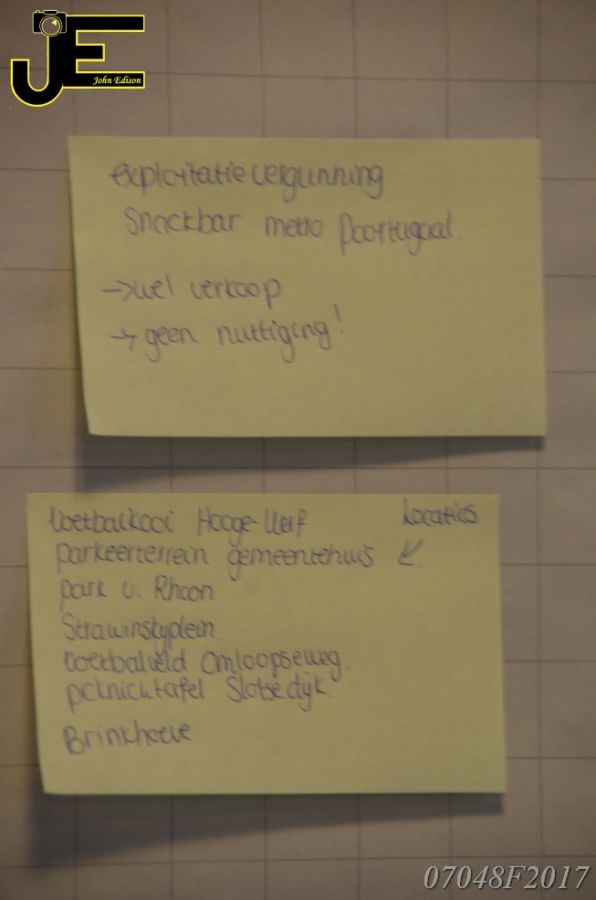 JE
John Edison
exploitatievergunning
Snackbar metro Poortugaal.
→ wel verkoop
→ geen nuttiging!
Locaties
↙
Voetbalkooi Hooge-Werf
parkeerterrein gemeentehuis
park v. Rhoon
Strawinskyplein
voetbalveld Omloopseweg.
picknicktafel Slotsedijk
Brinkhoeve
07048F2017